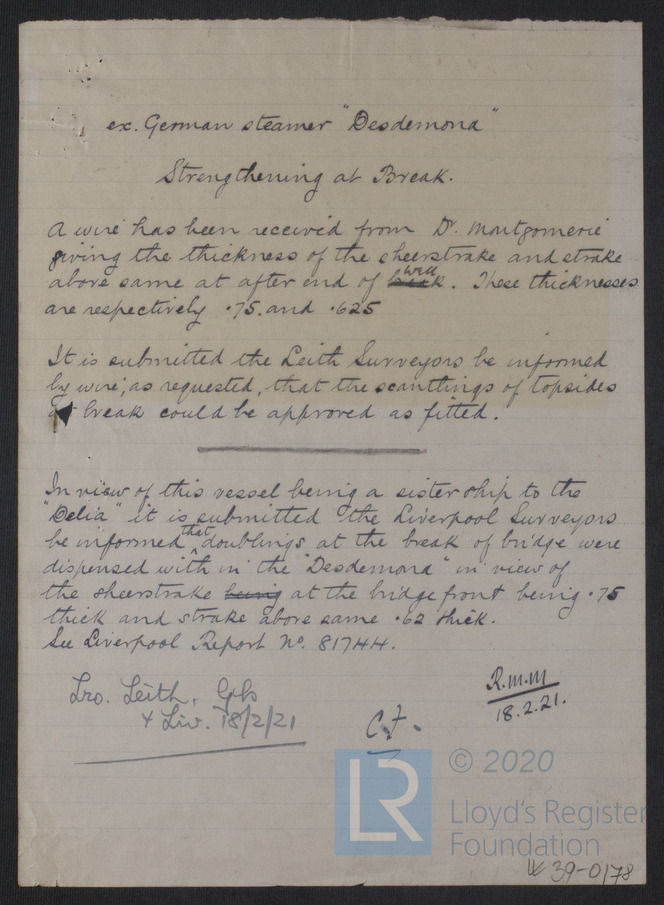 ex. German steamer "Desdemona"
Strengthening at Break.
A wire has been received from Dr. Montgomerie
giving the thickness of the sheerstrake and strake
above same at after end of well. These thicknesses
are respectively .75. and .625
It is submitted the Leith Surveyors be informed
by wire, as requested, that the scantlings of topsides
at break could be approved as fitted.
In view of this vessel being a sister ship to the
"Delia" it is submitted the Liverpool Surveyors
be informed that doublings at the break of bridge were
dispensed with in the "Desdemona" in view of
the sheerstrake being at the bridge front being .75
thick and strake above same .62 thick.
See Liverpool Report No. 81744.
Lro. Leith, Gls
& Liv. 18/2/21
C.F.
R.M.M
18.2.21.
LR
© 2020
Lloyd's Register
Foundation
W 39-0178